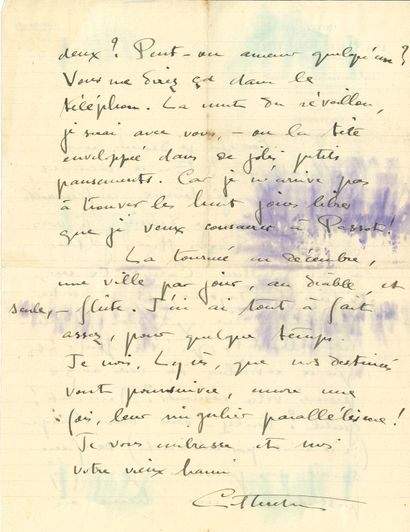 deux? Peut-on amener quelqu'un?
Vous me direz ça dans le
téléphon. La nuit du réveillon,
je serai avec vous, – ou la tête
enveloppée dans de jolis petits
pansements. Car je n'arrive pas
à trouver les huit jours libres
que je veux consacrer à Passot!
La tournée en décembre,
une ville par jour, au diable, et
seule, – flûte. J'en ai tout à fait
assez, pour quelque temps.
Je vois, que nos destinées
vont poursuivre, encore une
fois, leur singulier parallélisme!
Je vous embrasse et suis
votre vieux